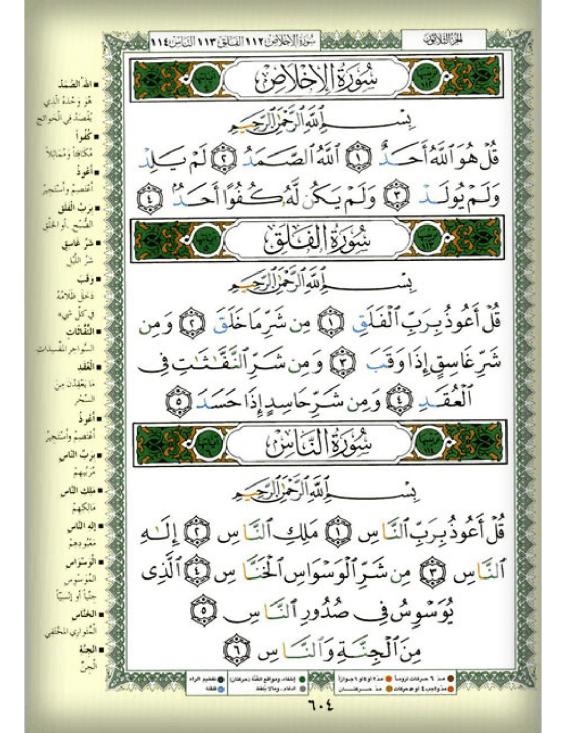 الجزء الثلاثون
سورة الإخلاص ١١٢ الفلق ١١٣ الناس ١١٤
سُورَةُ الإِخْلَاصِ
بِسْمِ اللَّهِ الرَّحْمَٰنِ الرَّحِيمِ
قُلْ هُوَ اللَّهُ أَحَدٌ ١ اللَّهُ الصَّمَدُ ٢ لَمْ يَلِدْ
وَلَمْ يُولَدْ ٣ وَلَمْ يَكُن لَّهُ كُفُوًا أَحَدٌ ٤
سُورَةُ الْفَلَقِ
بِسْمِ اللَّهِ الرَّحْمَٰنِ الرَّحِيمِ
قُلْ أَعُوذُ بِرَبِّ الْفَلَقِ ١ مِن شَرِّ مَا خَلَقَ ٢ وَمِن
شَرِّ غَاسِقٍ إِذَا وَقَبَ ٣ وَمِن شَرِّ النَّفَّاثَاتِ فِي
الْعُقَدِ ٤ وَمِن شَرِّ حَاسِدٍ إِذَا حَسَدَ ٥
سُورَةُ النَّاسِ
بِسْمِ اللَّهِ الرَّحْمَٰنِ الرَّحِيمِ
قُلْ أَعُوذُ بِرَبِّ النَّاسِ ١ مَلِكِ النَّاسِ ٢ إِلَٰهِ
النَّاسِ ٣ مِن شَرِّ الْوَسْوَاسِ الْخَنَّاسِ ٤ الَّذِي
يُوَسْوِسُ فِي صُدُورِ النَّاسِ ٥
مِنَ الْجِنَّةِ وَالنَّاسِ ٦
اللهُ الصَّمَدُ
هُوَ وَحْدَهُ الَّذِي
يُقْصَدُ فِي الْحَوَائِجِ
كُفُواً
مُكَافِئاً وَمُمَاثِلاً
أَعُوذُ
أَعْتَصِمُ وَأَسْتَجِيرُ
بِرَبِّ الْفَلَقِ
الصُّبْحِ. أَوِ الْخَلْقِ
شَرِّ غَاسِقٍ
شَرِّ اللَّيْلِ
وَقَبَ
دَخَلَ ظَلَامُهُ
فِي كُلِّ شَيْءٍ
النَّفَّاثَاتِ
السَّوَاحِرِ الْمُفْسِدَاتِ
الْعُقَدِ
مَا يَعْقِدْنَ مِنَ
السِّحْرِ
أَعُوذُ
أَعْتَصِمُ وَأَسْتَجِيرُ
بِرَبِّ النَّاسِ
مُرَبِّيهِمْ
مَلِكِ النَّاسِ
مَالِكِهِمْ
إِلَهِ النَّاسِ
مَعْبُودِهِمْ
الْوَسْوَاسِ
الْمُوَسْوِسِ
جِنِّيّاً أَوْ إِنْسِيّاً
الْخَنَّاسِ
الْمُتَوَارِي الْمُخْتَفِي
الْجِنَّةِ
الْجِنِّ
مدّ ٦ حركات لزوماً مدّ ٢ أو ٤ أو ٦ جوازاً
مدّ واجب ٤ أو ٥ حركات مدّ حركتان
إخفاء، ومواقع الغُنَّة (حركتان)
ادغام، وما لا يُلفظ
تفخيم الراء
قلقلة
٦٠٤